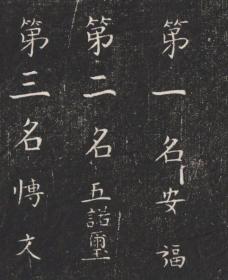 第一名安福
第二名五諾璽
第三名慱文